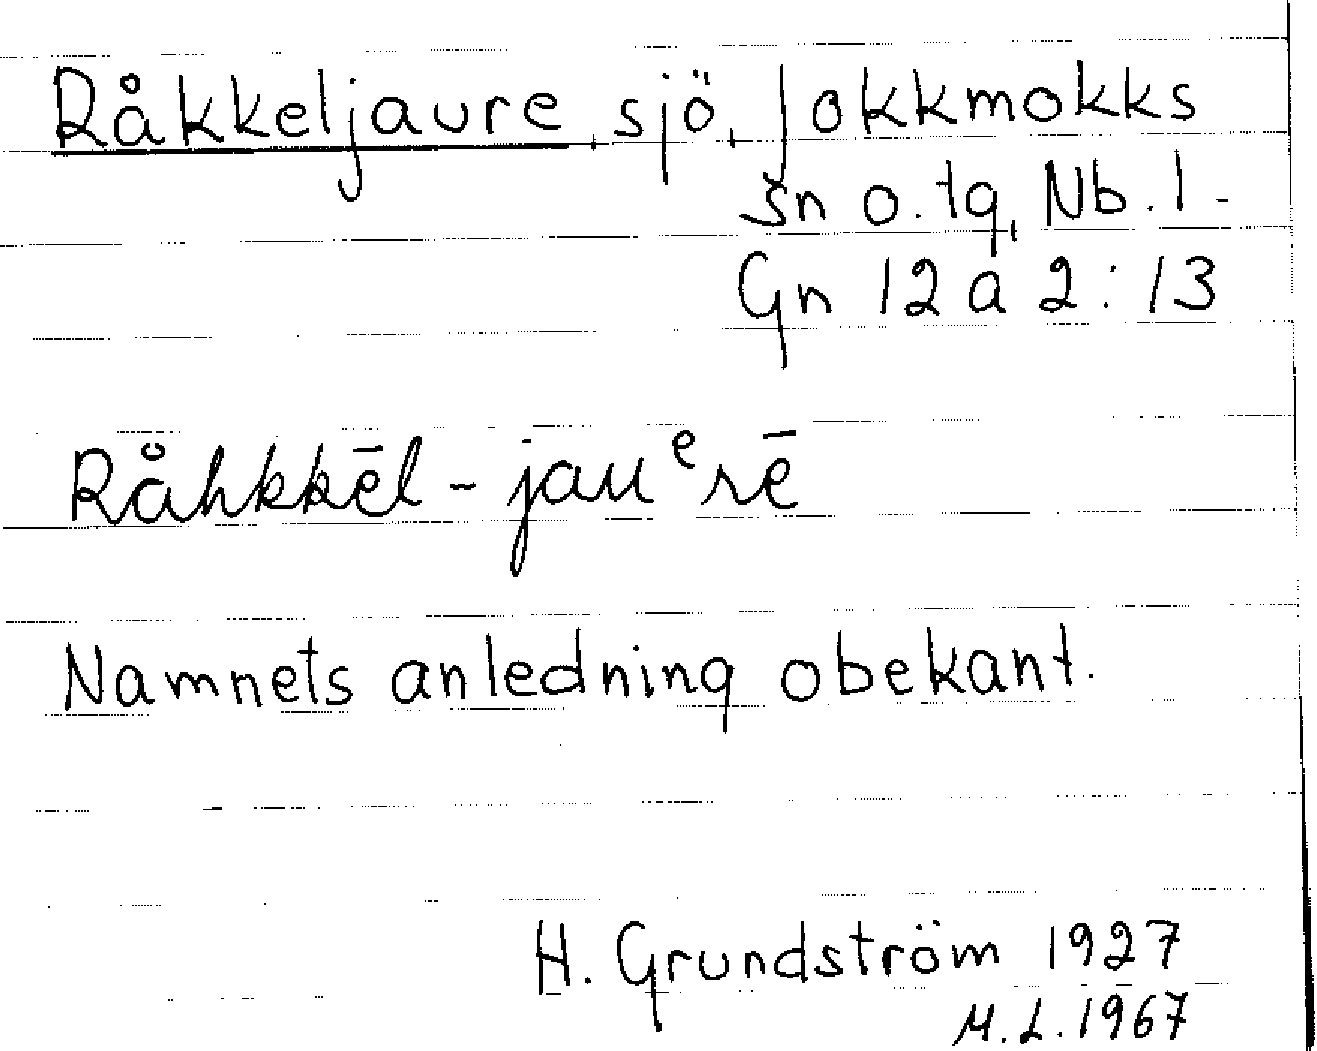 Råkkeljaure, sjö, Jokkmokks
sn o. tg, Nb. l.
Gn 12 a 2:13
Råhkkēl-jauᵉrē
Namnets anledning obekant.
H. Grundström 1927
M.L. 1967